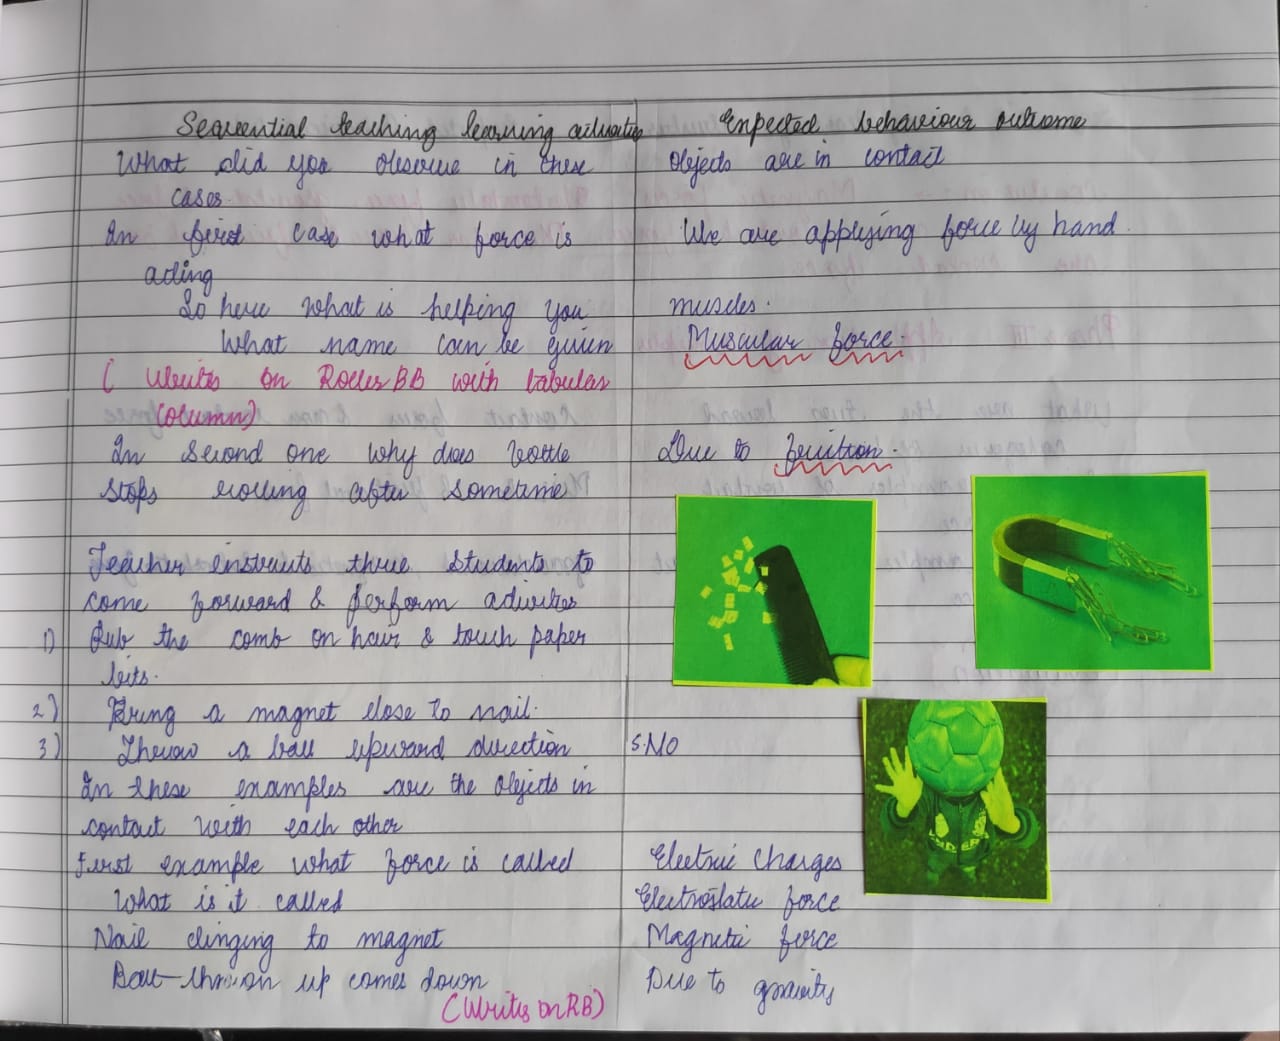 Sequential teaching learning activities Expected behaviour outcome
What did you observe in these Objects are in contact
cases.
In first case what force is We are applying force by hand.
acting
So here what is helping you muscles.
What name can be given Muscular force.
( Writes on Roller BB with tabular
Column)
In Second one why does bottle Due to friction.
stops rolling after sometime
Teacher instructs three students to
come forward & perform activities
1) Rub the comb on hair & touch paper
bits.
2) Bring a magnet close to nail.
3) Throw a ball upward direction S.NO
In these examples are the objects in
contact with each other
First example what force is called Electric Charges
What is it called Electrostatic force
Nail clinging to magnet Magnetic force
Ball thrown up comes down Due to gravity
(Writes on RB)